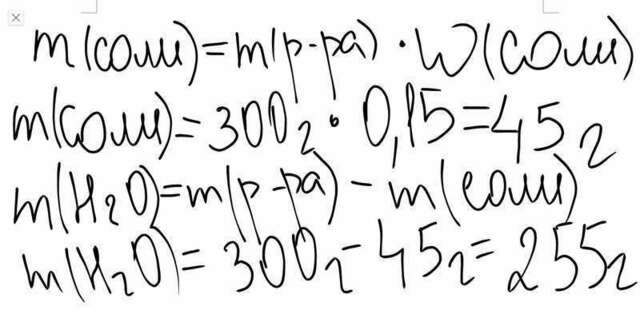 m(соли)=m(р-ра)·W(соли)
m(соли)=300г·0,15=45г
m(H₂O)=m(р-ра)-m(соли)
m(H₂O)=300г-45г=255г